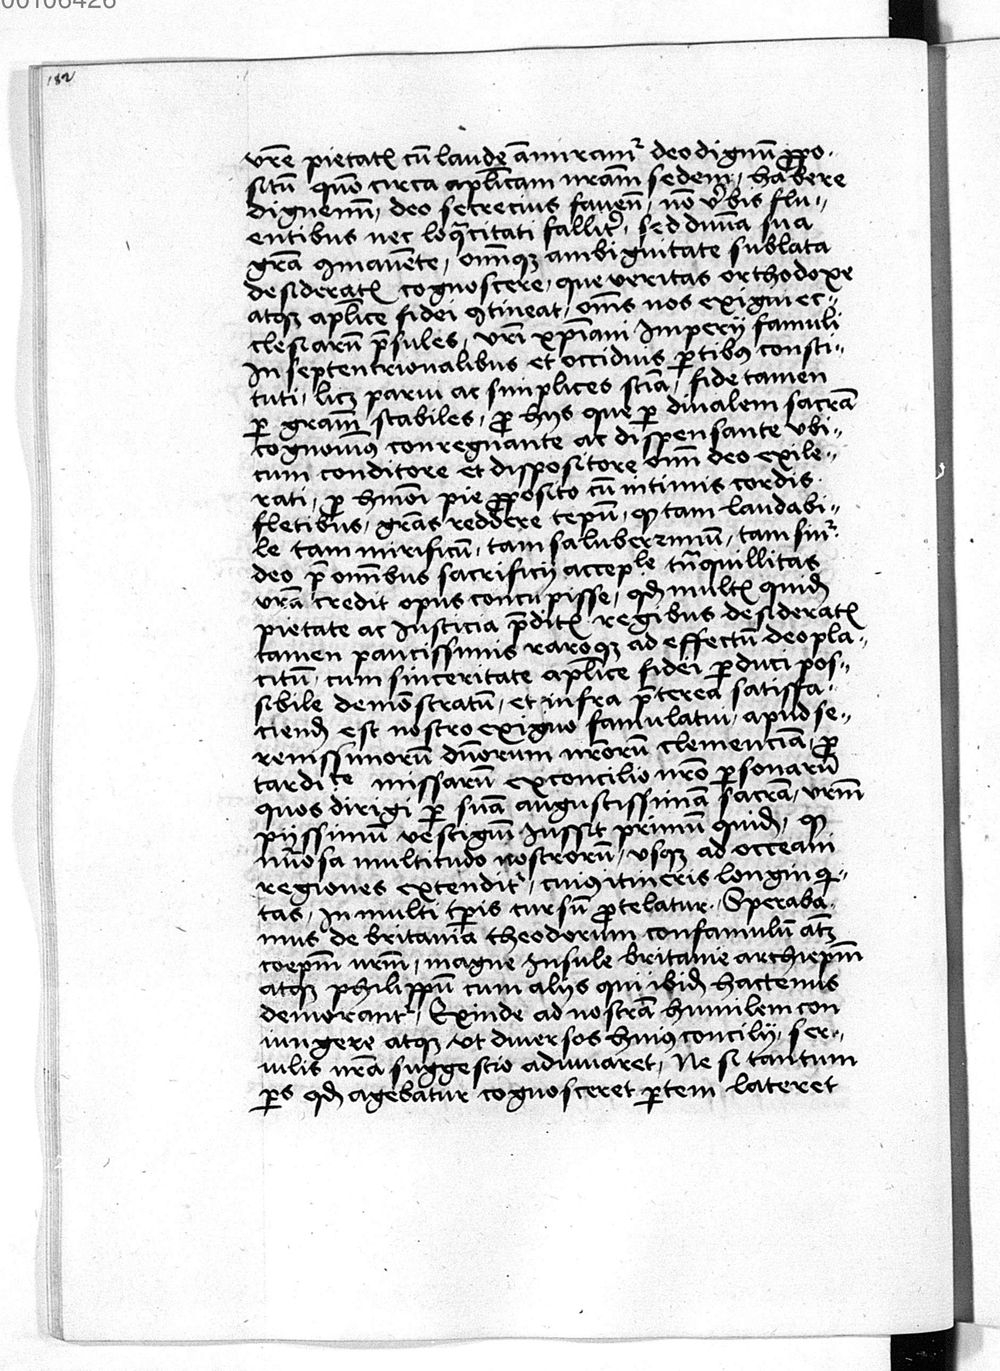 00106426
182
vr̄e pietatꝭ cū laude āmiramᷣ deo dignū ꝓpo-
sitū quo circa apl̄icam nr̄am sedem, habere
dignemī, deo secrecius fauen̄, nō v̓bis flu-
entibus nec loq̄citati fallit᷑, sed diuīa sua
gr̄a ꝯmauēte, om̄iqꝫ ambiguitate sublata
desideratꝭ cognoscere, que veritas orthodoxe
atqꝫ apl̄ice fidei ꝯtineat, om̄s nos exigui ec-
clesiarū p̄sules, vr̄i xp̄iani Imperij famuli
In septentrionalibus et occiduis ꝑtibꝰ consti-
tuti, licꝫ parui ac simplices sciā, fide tamen
ꝑ gram̄ stabiles, ꝓ hijs que ꝑ diualem sacrā
cognouimꝰ conregnante ac dispensante vbi-
cum conditore et dispositore om̄i deo exile-
rati, ꝑ hmōi pie ꝓposito cū intimis cordis
fletibus, grās reddere cepīꝰ, qꝫ tam laudabi-
le tam mirificū, tam saluberrimū, tam sinᷣ
deo p̄ omībus sacrificij accepᵇle tn̄quillitas
vrā credit opus concupisse, qd̄ multꝭ quid̄
pietate ac Iusticia p̄ditꝭ regibus desideratꝭ
tamen paucissimis raroqꝫ ad effectū deo pla-
citū, cum sinceritate apl̄ice fidei ꝑduci pos-
sibile demōstratū, et infra p̄terea satisfa-
ciend̄ est nostro exiguo famulatui, apud se-
renissimorū dn̄orum nr̄orū clemenciā, ꝓ
tarditᵗe missarū ex concilio nr̄o ꝑsonarū
quos dirigi ꝑ suā augustissimā sacrā, vrm̄
pijssimū vestigiū Iussit primū quid̄, qꝫ
nūosa multitudo nostrorū, vsqꝫ ad occeani
regiones extendit᷑, cuiꝰ itineris longinq̇-
tas, In multi tꝑis cursū ꝓtelatur. Speraba-
mus de britania theodorum confamulū atqꝫ
coepm̄ nrm̄, magne Insule britanie archiepm̄
atqꝫ philippū cum alijs qui ibid̄ hactenus
demorant᷑, Exinde ad nostrā humilem con
iungere atqꝫ vt diuersos huiꝰ concilij, ser-
uilis nr̄a suggestio adiuuaret, Ne si tantum
ꝑs qd̄ agebatur cognosceret ꝑtem lateret